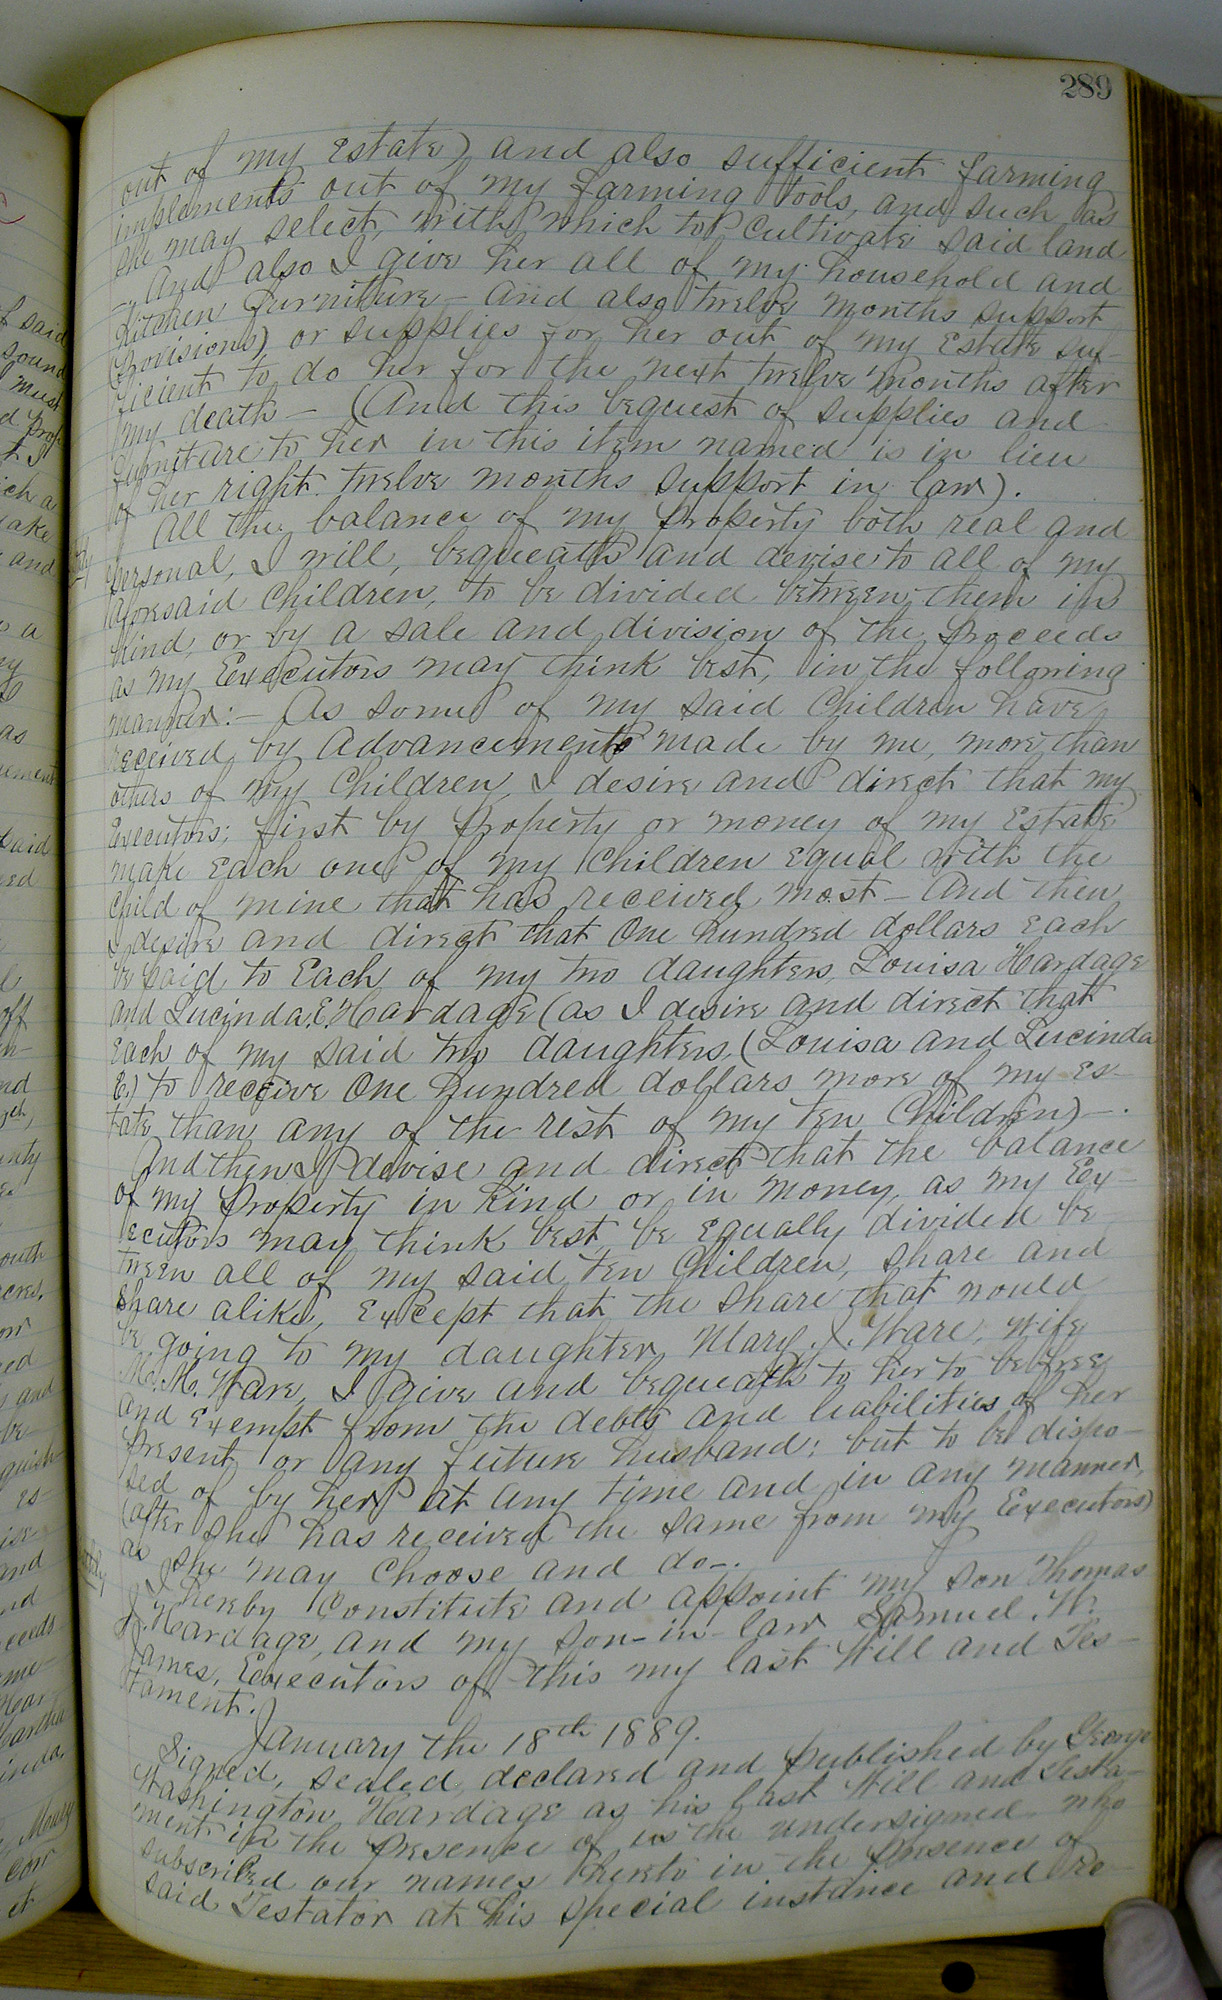 289
out of my Estate) and also sufficient farming
implements out of my farming tools, and such as
she may select, with which to cultivate said land
—, And also I give her all of my household and
Kitchen furniture — And also twelve months support
(Provisions) or supplies for her out of my Estate suf-
ficient to do her for the next twelve months after
my death — (And this bequest of supplies and
furniture to her in this item named is in lieu
of her right twelve months support in law).
All the balance of my property both real and
personal, I will, bequeath and devise to all of my
aforesaid Children, to be divided between them in
kind, or by a sale and division of the proceeds
as my Executors may think best, in the following
manner:— As some of my said Children have
received by advancements made by me, more than
others of my Children, I desire and direct that my
Executors, first by property or money of my Estate
make each one of my Children equal with the
Child of mine that has received most — And then
I desire and direct that One hundred dollars each
be paid to Each of my two daughters, Louisa Hardage
and Lucinda E. Hardage (as I desire and direct that
each of my said two daughters, (Louisa and Lucinda
E.) to receive One hundred dollars more of my Es-
tate than any of the rest of my ten Children) —.
And then I devise and direct that the balance
of my property in kind or in money, as my Ex-
ecutors may think best, be equally divided be
tween all of my said ten Children, share and
share alike, Except that the share that would
be going to my daughter Mary J. Ware, wife
M. M. Ware, I give and bequeath to her to be free
and exempt from the debts and liabilities of her
present or any future husband: but to be dispo-
sed of by her at any time and in any manner,
(after she has received the same from my Executors)
as she may choose and do —.
I hereby Constitute and appoint my son Thomas
J. Hardage, and my son-in-law Samuel W.
James, Executors of this my last Will and Tes-
tament.
January the 18th 1889.
Signed, sealed, declared and published by George
Washington Hardage as his last Will and Testa-
ment in the presence of us the undersigned who
subscribed our names hereto in the presence of
said Testator at his special instance and re-